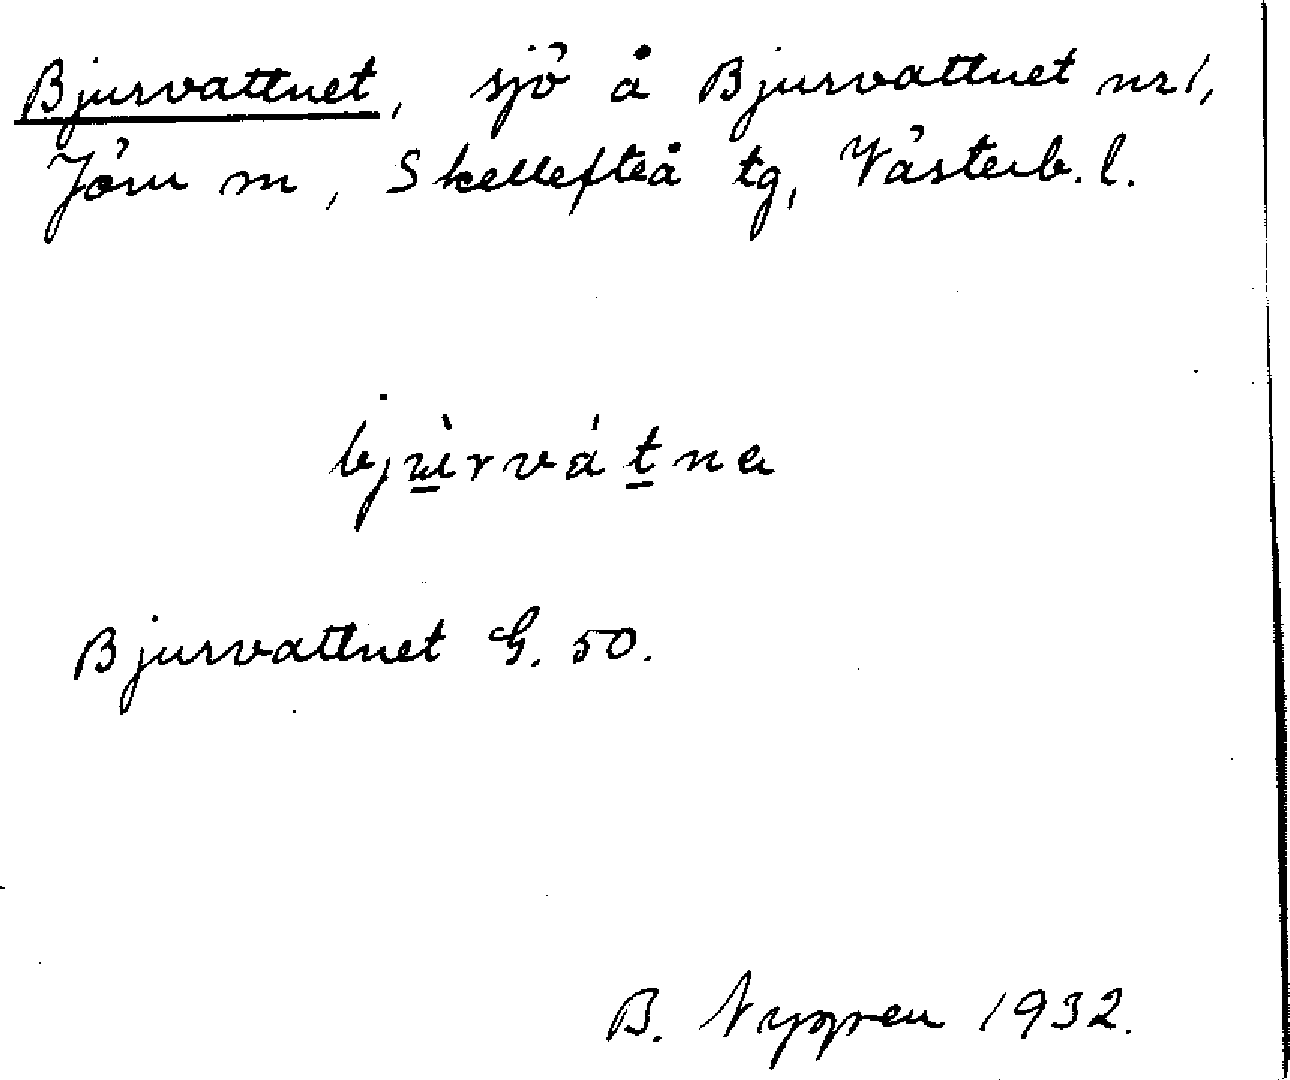 Bjurvattnet, sjö å Bjurvattnet nr 1,
Jörn m, Skellefteå tg, Västerb. l.
bjùrvátna
Bjurvattnet G. 50.
B. Nygren 1932.